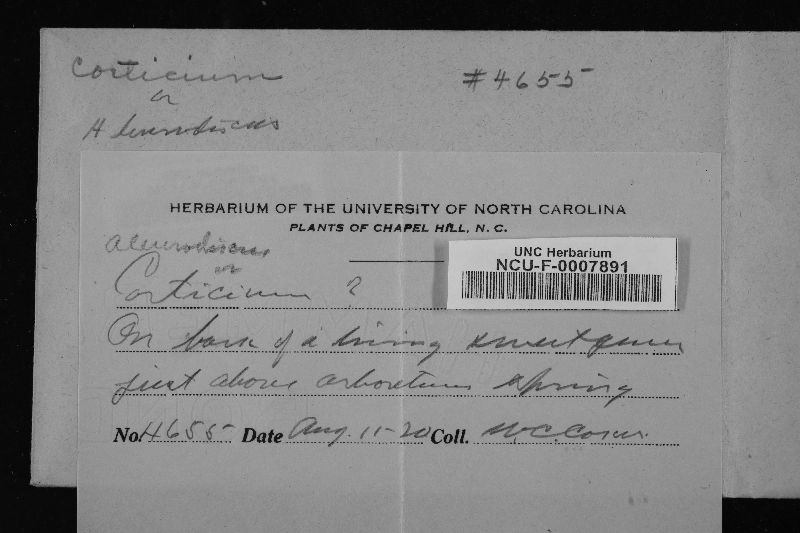 Corticium
or
Aleurodiscus
#4655
HERBARIUM OF THE UNIVERSITY OF NORTH CAROLINA
PLANTS OF CHAPEL HILL, N. C.
Aleurodiscus
or
Corticium ?
UNC Herbarium
NCU-F-0007891
On bark of a living sweet gum
just above arboretum spring
No. 4655 Date Aug. 11-20 Coll. W.C. Coker